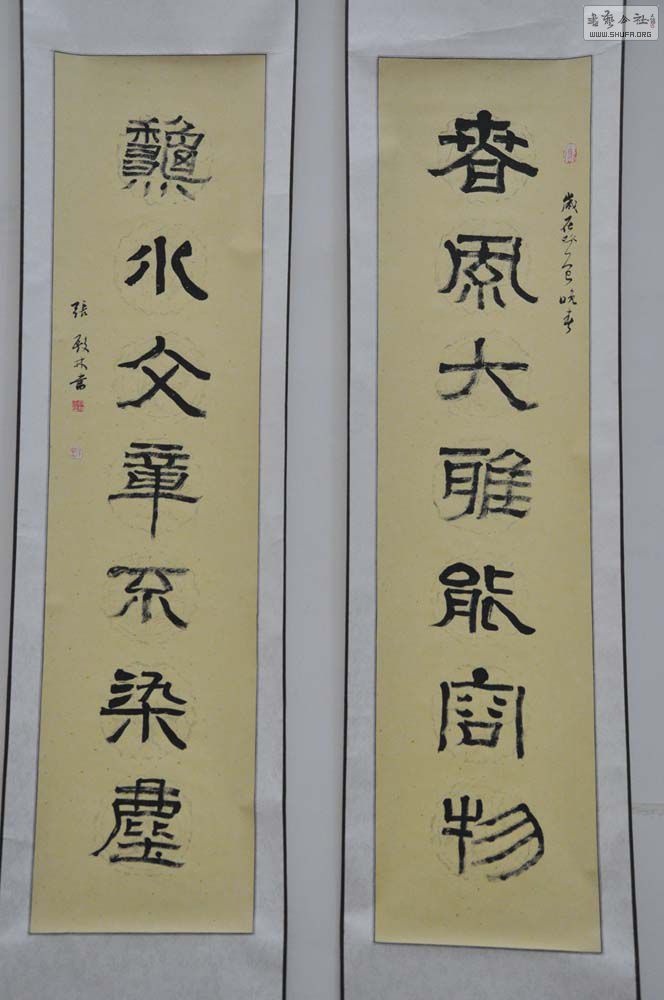 書藝公社
WWW.SHUFA.ORG
春風大雅能容物
歲在 晚春
龝水文章不染塵
張 書